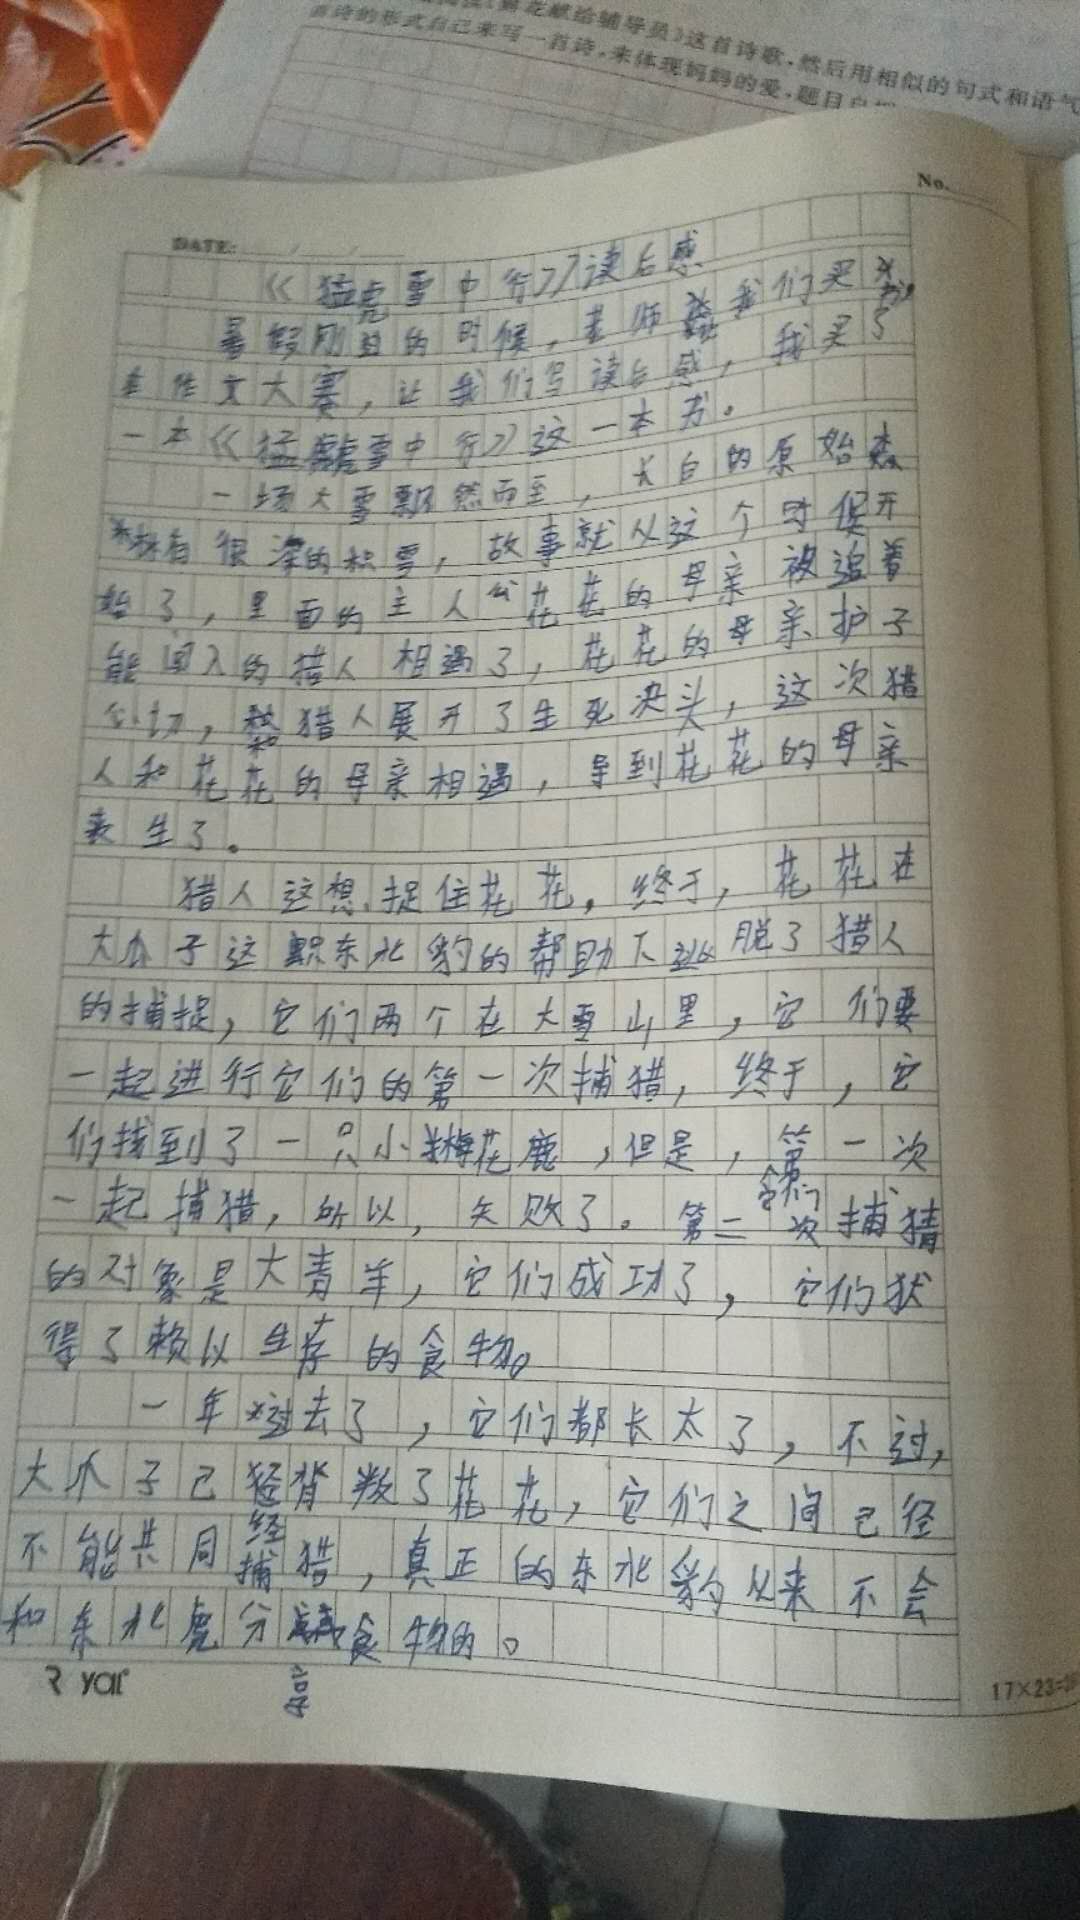 鲜花献给辅导员》这首诗歌,然后用相似的句式和语气
首诗的形式自己来写一首诗,来体现妈妈的爱,题目自
No.
DATE: / /
《猛虎雪中行》读后感
暑假刚放的时候,老师我们买书,
作文大赛,让我们写读后感,我买了
一本《猛虎雪中行》这一本书。
一场大雪飘然而至,长白的原始森
林有很深的积雪,故事就从这个时候开
始了,里面的主人公花花的母亲被追着
闯入的猎人相遇了,花花的母亲护子
心切,和猎人展开了生死决头,这次猎
人和花花的母亲相遇,导到花花的母亲
丧生了。
猎人这想捉住花花。终于,花花在
大爪子这只东北豹的帮助下逃脱了猎人
的捕捉,它们两个在大雪山里,它们要
一起进行它们的第一次捕猎,终于,它
们找到了一只小梅花鹿,但是,第一次
一起捕猎,所以,失败了。第二次捕猜
它们
的对象是大青羊,它们成功了,它们状
得了赖以生存的食物。
一年过去了,它们都长太了,不过,
大爪子己经背叛了花花,它们之间已径
不能共同捕猎,真正的东北豹从来不会
和东北虎分享食物的。
R yal
17×23=